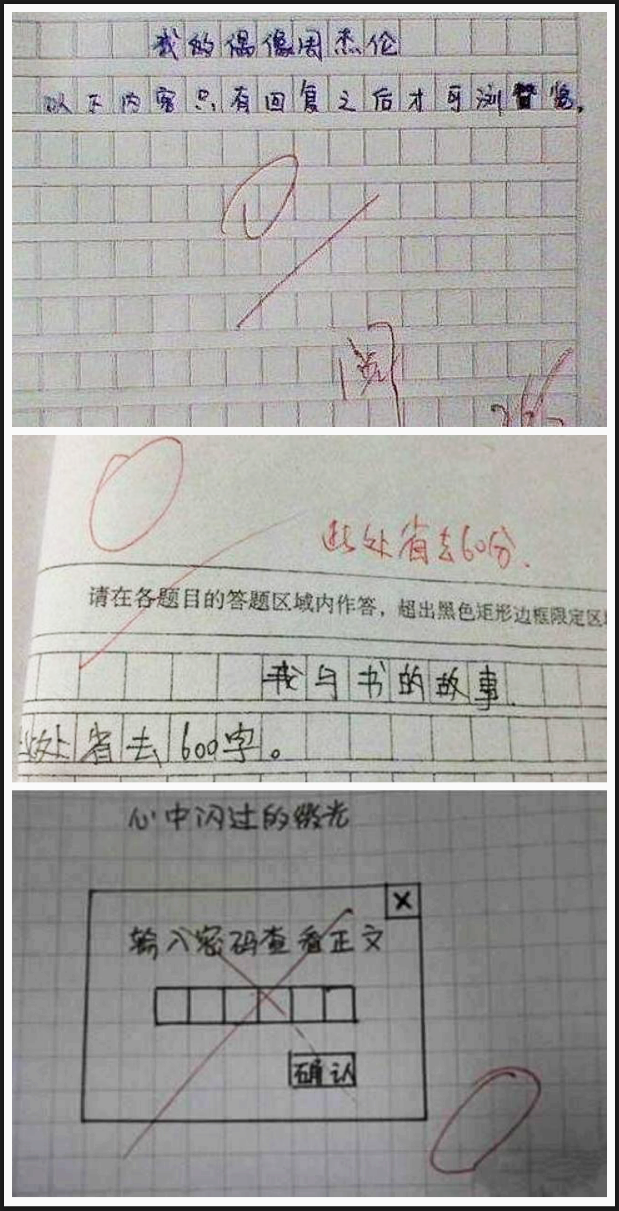 我的偶像周杰伦
以下内容只有回复之后才可浏览。
阅
此处省去60分.
请在各题目的答题区域内作答，超出黑色矩形边框限定区
我与书的故事.
此处省去600字。
心中闪过的微光
×
输入密码查看正文
确认